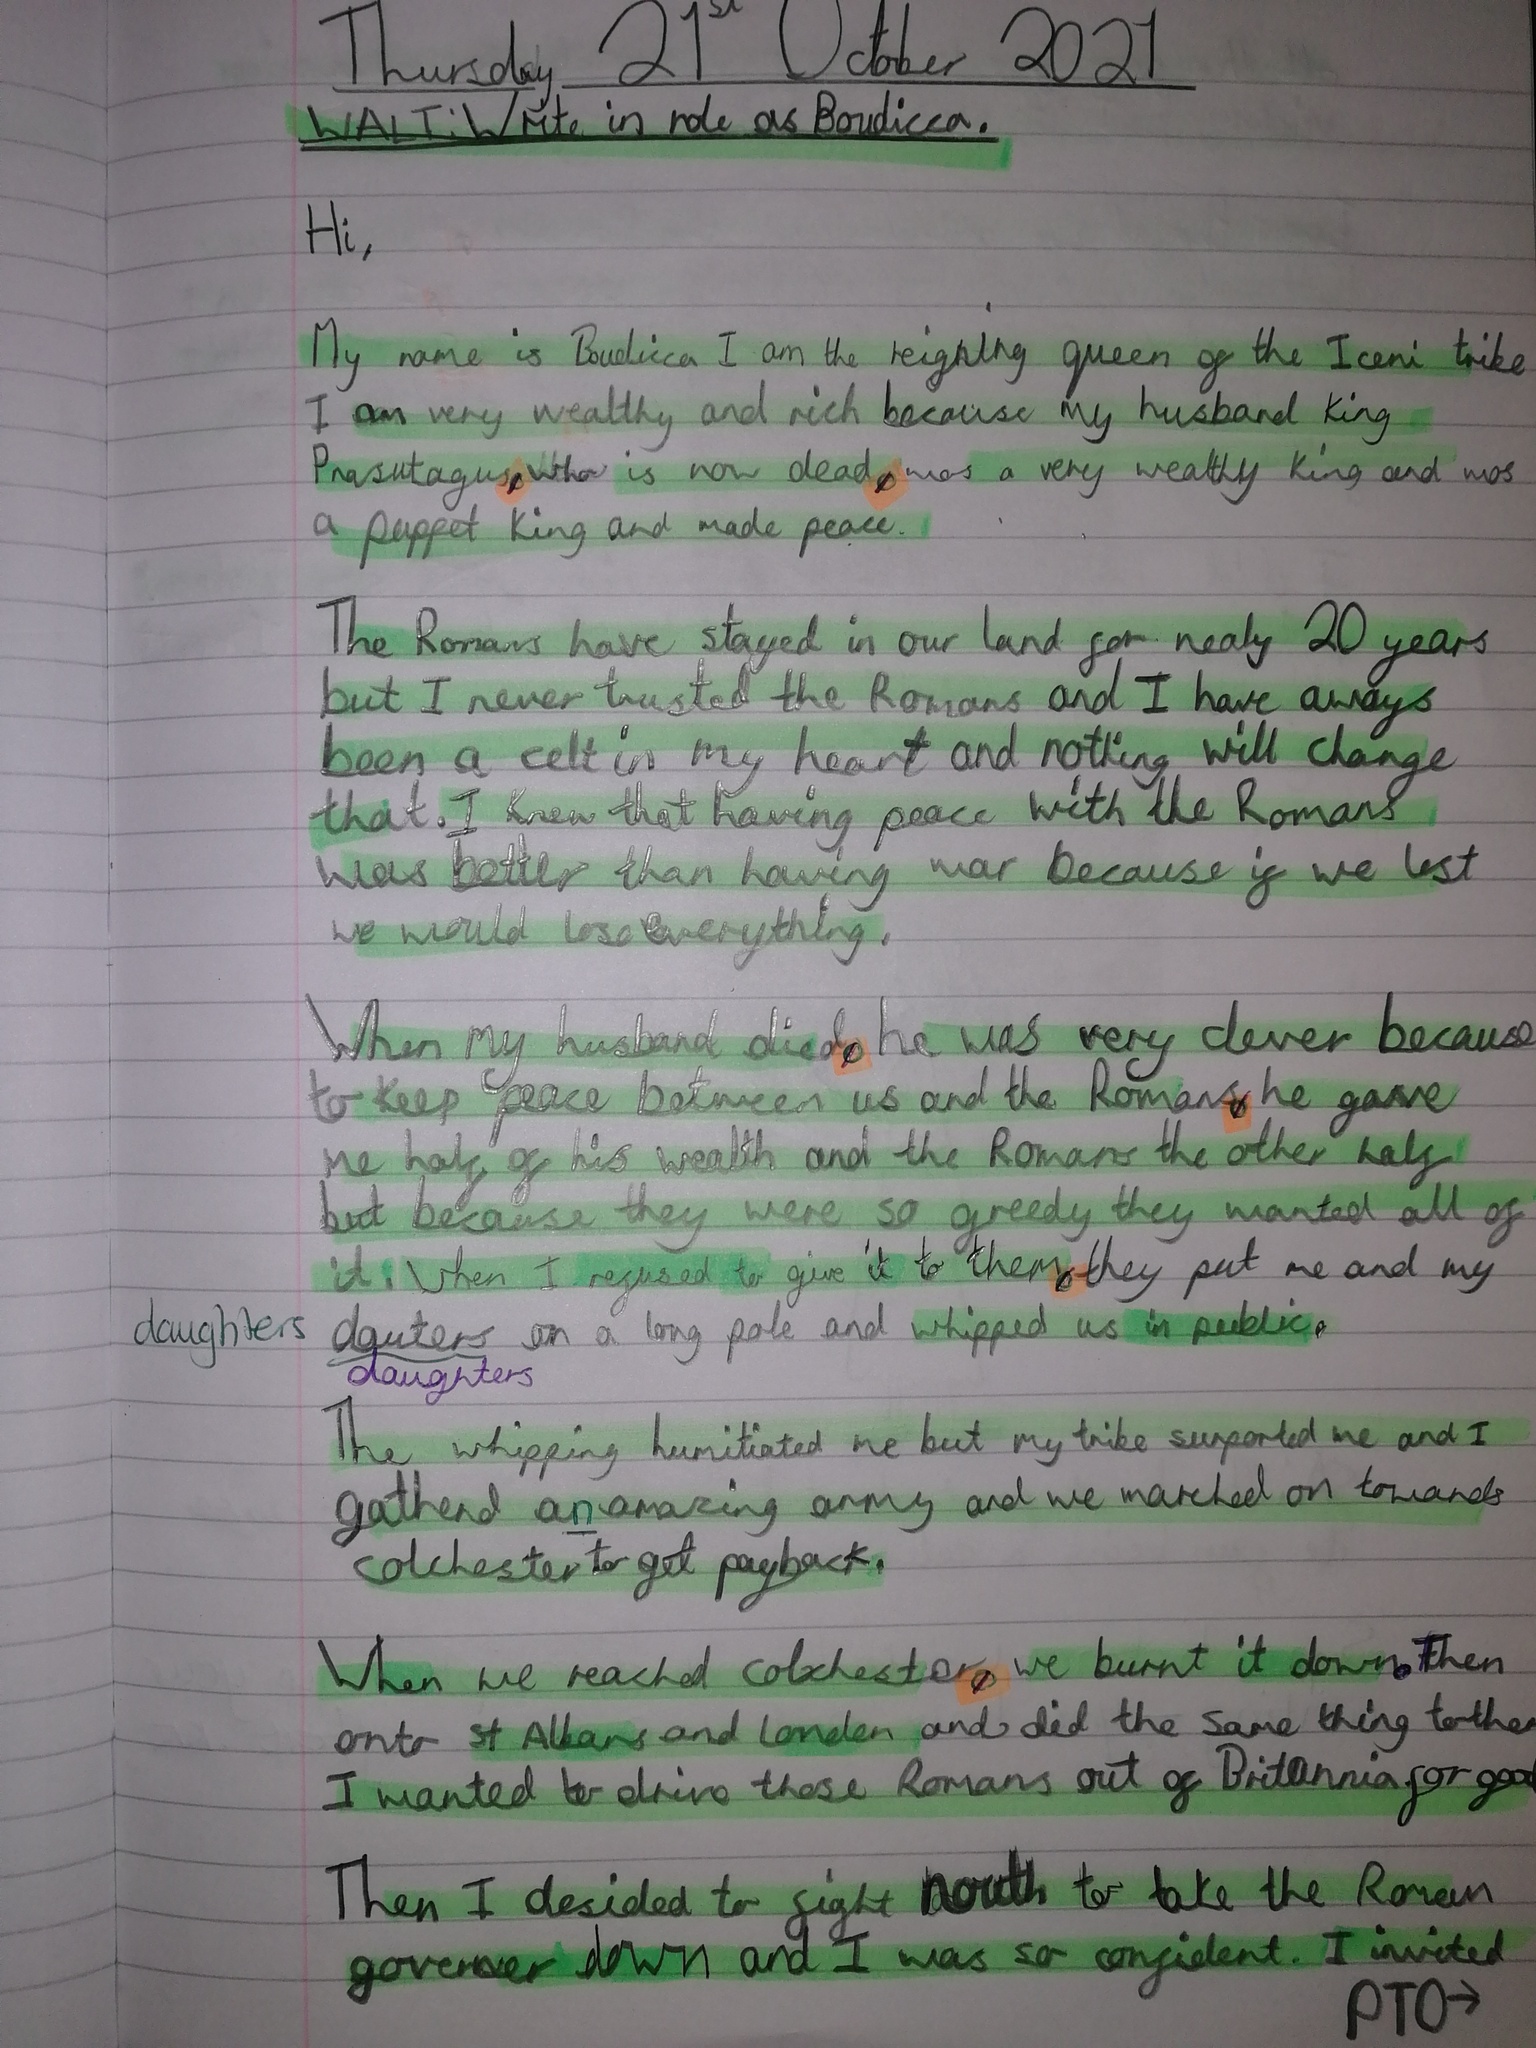 Thursday 21st October 2021
WALT: Write in role as Boudicca.
Hi,
My name is Boudicca I am the reigning queen of the Iceni tribe
I am very wealthy and rich because my husband King
Prasutagus, who is now dead, was a very wealthy King and was
a puppet King and made peace.
The Romans have stayed in our land for nealy 20 years
but I never trusted the Romans and I have aways
been a celt in my heart and nothing will change
that. I knew that having peace with the Romans
was better than having war because if we lost
we would lose everything.
When my husband died, he was very clever because
to keep peace between us and the Romans, he gave
me half of his wealth and the Romans the other half
but because they were so greedy they wanted all of
it. When I refused to give it to them, they put me and my
daughters dauters on a long pole and whipped us in public.
daughters
The whipping humitiated me but my tribe surported me and I
gatherd an amazing army and we marched on towards
colchester to get payback.
When we reached colchester, we burnt it down. Then
onto st Albans and London and did the same thing to them
I wanted to drive those Romans out of Britannia for good
Then I desided to fight north to take the Roman
governer down and I was so confident. I invited
PTO→